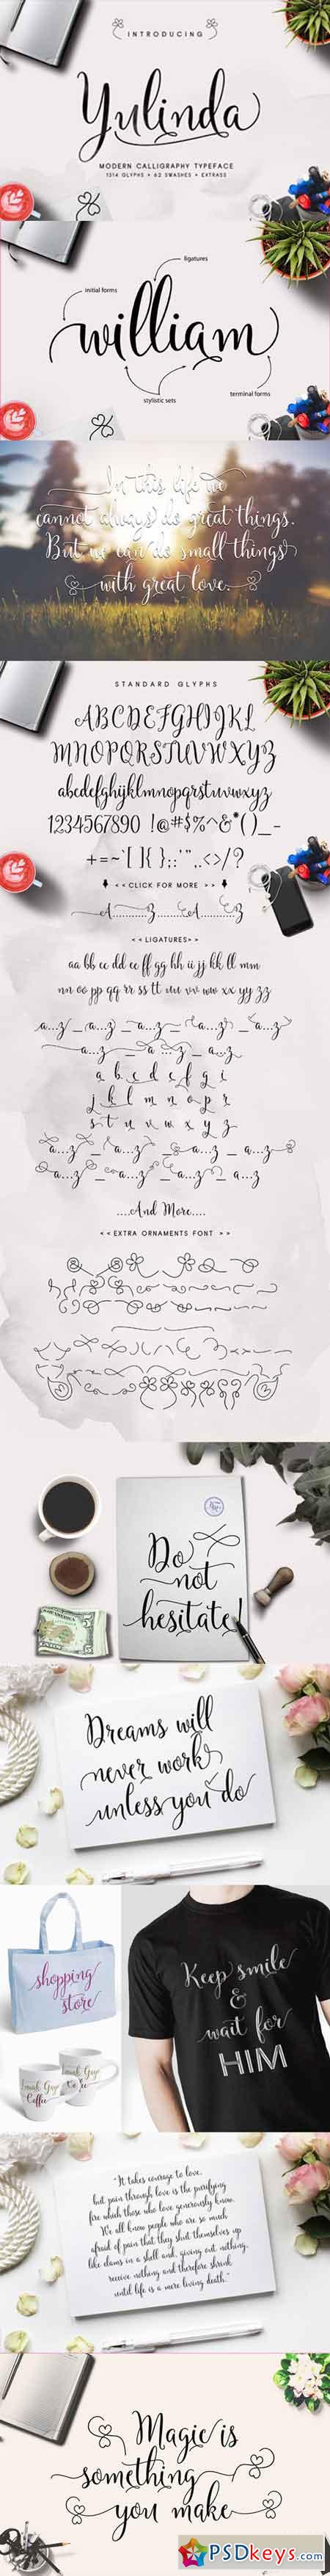 INTRODUCING
Yulinda
MODERN CALLIGRAPHY TYPEFACE
1314 GLYPHS + 62 SWASHES + EXTRASS
ligatures
initial forms
william
stylistic sets
terminal forms
In this life we
cannot always do great things.
But we can do small things
with great love.
STANDARD GLYPHS
ABCDEFGHIJKL
MNOPQRSTUVWXYZ
abcdefghijklmnopqrstuvwxyz
1234567890 !@#$%^&*()_-
+=~`[]{};:'",.<>/?
<<CLICK FOR MORE >>
A..........Z..........A..........Z
<<LIGATURES>>
aa bb cc dd ee ff gg hh ii jj kk ll mm
nn oo pp qq rr ss tt uu vv ww xx yy zz
a...z _ a...z _ a...z _ a...z _ a...z
a...z _ a...z _ a...z
a b c d e f g i
j k l m n o p r
s t u v w x y z
a...z _ a...z _ a...z _ a...z
a...z _ a...z _ a...z _ a...z
....And More....
<<EXTRA ORNAMENTS FONT >>
Do
not
hesitate!
Dreams will
never work
unless you do
shopping
store
Coffee
Coffee
Keep smile
&
wait for
HIM
"It takes courage to love,
but pain through love is the purifying
fire which those who love generously know.
We all know people who are so much
afraid of pain that they shut themselves up
like clams in a shell and, giving out nothing,
receive nothing and therefore shrink
until life is a mere living death."
Magic is
something
you make
PSDkeys.com